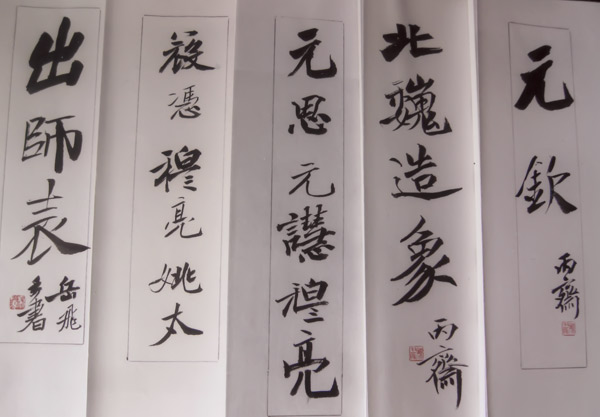 元欽
丙齋
北魏造象
丙齋
元思元譿穆亮
寇憑穆亮姚太
出師表
岳飛
書